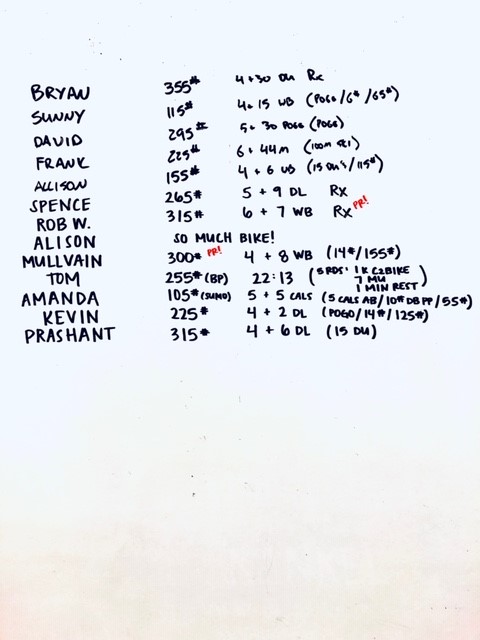 BRYAN 355# 4+30 DU Rx
SUNNY 115# 4+15 WB (POGO/6#/65#)
DAVID 295# 5+30 POGO (POGO)
FRANK 225# 6+44m (100m SKI)
ALLISON 155# 4+6 WB (15 DU's/115#)
SPENCE 265# 5+9 DL Rx
ROB W. 315# 6+7 WB Rx PR!
ALISON SO MUCH BIKE!
MULLVAIN 300# PR! 4+8 WB (14#/155#)
TOM 255# (BP) 22:13 (5 RDS: 1K C2BIKE
7 MU
1 MIN REST)
AMANDA 105# (SUMO) 5+5 CALS (5 CALS AB/10# DB PP/55#)
KEVIN 225# 4+2 DL (POGO/14#/125#)
PRASHANT 315# 4+6 DL (15 DU)